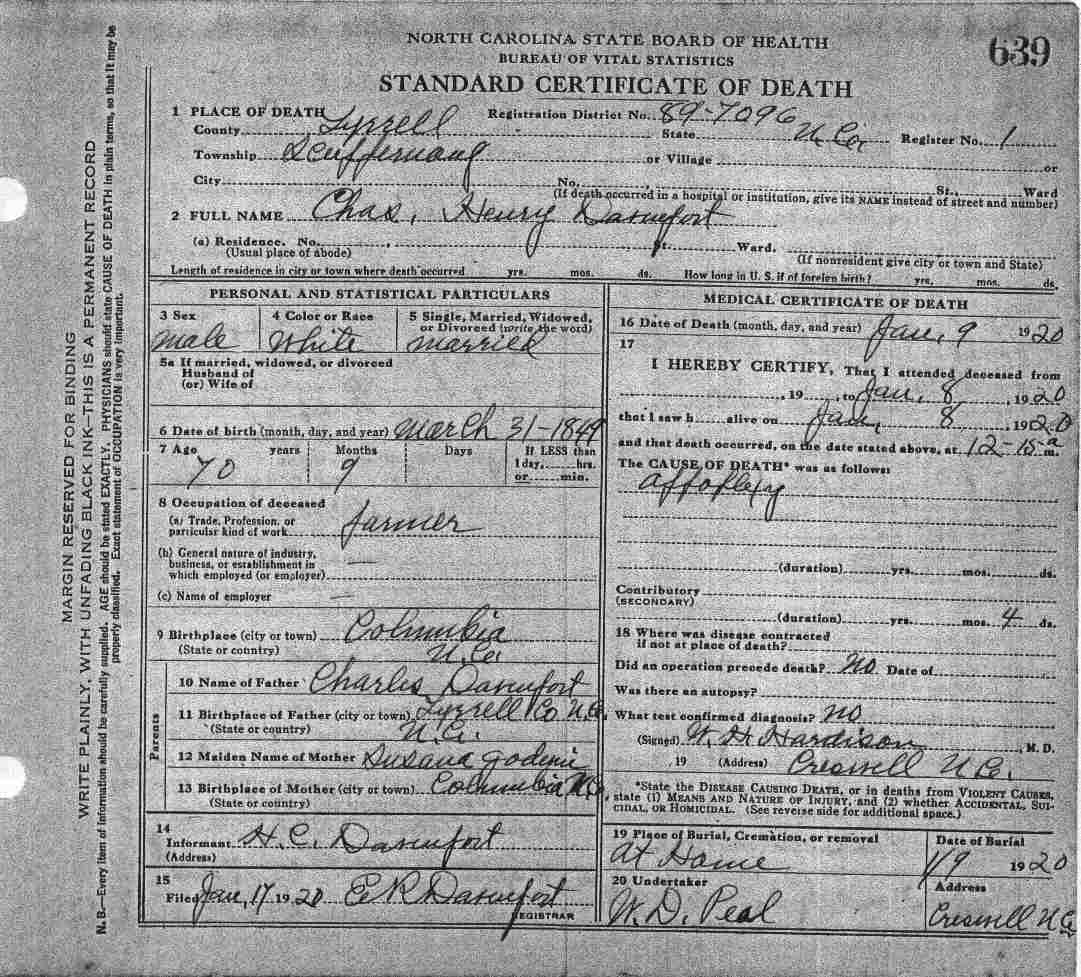 639
NORTH CAROLINA STATE BOARD OF HEALTH
BUREAU OF VITAL STATISTICS
STANDARD CERTIFICATE OF DEATH
1 PLACE OF DEATH Registration District No. 89-7096
County Tyrrell State N. Co. Register No. 1
Township Scuffernong or Village or
City No. St., Ward
(If death occurred in a hospital or institution, give its NAME instead of street and number)
2 FULL NAME Chas. Henry Davenport
(a) Residence. No. , St. Ward,
(Usual place of abode) (If nonresident give city or town and State)
Length of residence in city or town where death occurred yrs. mos. ds. How long in U. S. if of foreign birth? yrs. mos. ds.
PERSONAL AND STATISTICAL PARTICULARS
3 Sex 4 Color or Race 5 Single, Married, Widowed,
or Divorced (write the word)
male White married
5a If married, widowed, or divorced
Husband of
(or) Wife of
6 Date of birth (month, day, and year) march 31-1849
7 Age years Months Days If LESS than
1 day, hrs.
70 9 or min.
8 Occupation of deceased
(a) Trade, Profession, or
particular kind of work farmer
(b) General nature of industry,
business, or establishment in
which employed (or employer) —
(c) Name of employer —
9 Birthplace (city or town) Columbia
(State or country) N. Co.
Parents
10 Name of Father Charles Davenport
11 Birthplace of Father (city or town) Tyrrell Co N.C.
(State or country) N. C.
12 Maiden Name of Mother Susana
13 Birthplace of Mother (city or town) Columbia N.C.
(State or country)
14
Informant H. C. Davenport
(Address)
15
Filed Jan, 17 1920 E R Davenport
REGISTRAR
MEDICAL CERTIFICATE OF DEATH
16 Date of Death (month, day, and year) Jan, 9 1920
17
I HEREBY CERTIFY, That I attended deceased from
, 19 , to Jan, 8, 1920
that I saw h alive on Jan, 8, 1920
and that death occurred, on the date stated above, at 12-15-a m.
The CAUSE OF DEATH* was as follows:
appoplexy
(duration) yrs. mos. ds.
Contributory
(SECONDARY)
(duration) yrs. mos. 4 ds.
18 Where was disease contracted
if not at place of death?
Did an operation precede death? no Date of
Was there an autopsy?
What test confirmed diagnosis? no
(Signed) W. H. Hardison, M. D.
, 19 (Address) Creswell N. C.
*State the DISEASE CAUSING DEATH, or in deaths from VIOLENT CAUSES,
state (1) MEANS AND NATURE OF INJURY, and (2) whether ACCIDENTAL, SUI-
CIDAL, OR HOMICIDAL. (See reverse side for additional space.)
19 Place of Burial, Cremation, or removal Date of Burial
At Home 1/9 1920
20 Undertaker Address
W. D. Peal Creswell N C
MARGIN RESERVED FOR BINDING
WRITE PLAINLY, WITH UNFADING BLACK INK—THIS IS A PERMANENT RECORD
N. B.—Every item of information should be carefully supplied. AGE should be stated EXACTLY. PHYSICIANS should state CAUSE OF DEATH in plain terms, so that it may be
properly classified. Exact statement of OCCUPATION is very important.